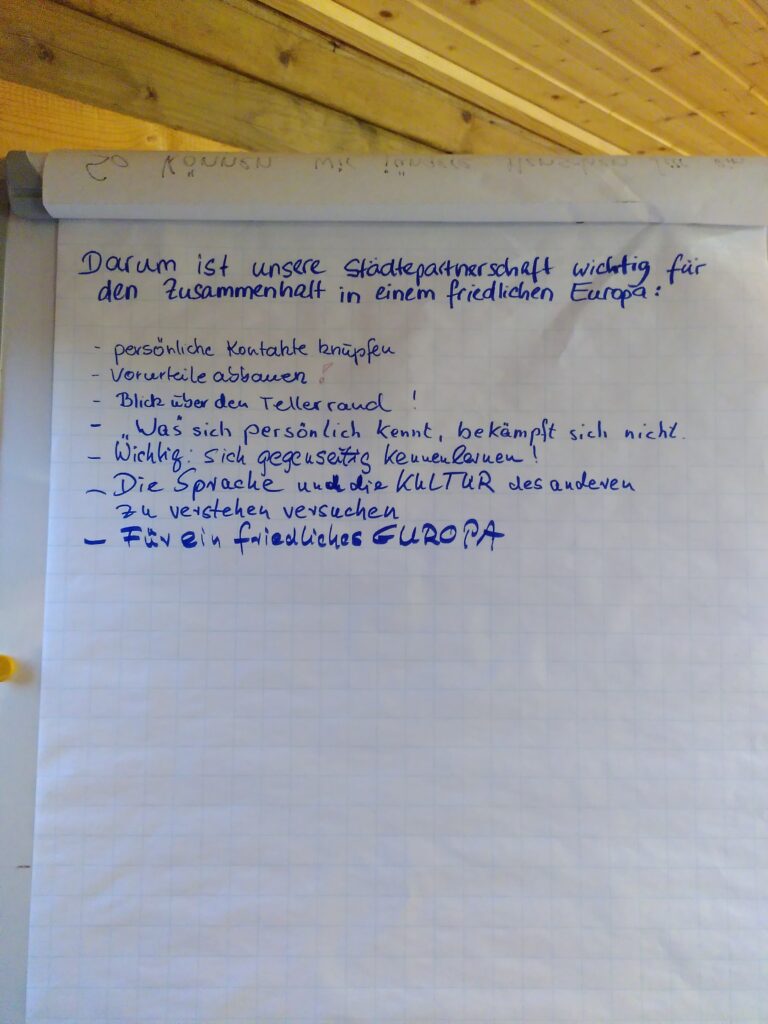 So Können wir jüngere Menschen für ein
Darum ist unsere Städtepartnerschaft wichtig für
den Zusammenhalt in einem friedlichen Europa:
- persönliche Kontakte knüpfen
- Vorurteile abbauen !
- Blick über den Tellerrand !
- "Was sich persönlich kennt, bekämpft sich nicht.
- Wichtig: sich gegenseitig kennenlernen!
- Die Sprache und die KULTUR des anderen
zu verstehen versuchen
- Für ein friedliches EUROPA